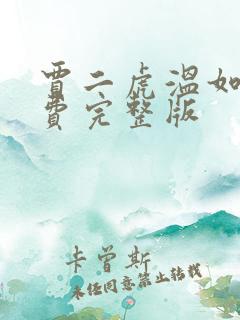 贾二虎温如
费完整版
卡曾斯
未经同意禁止转载